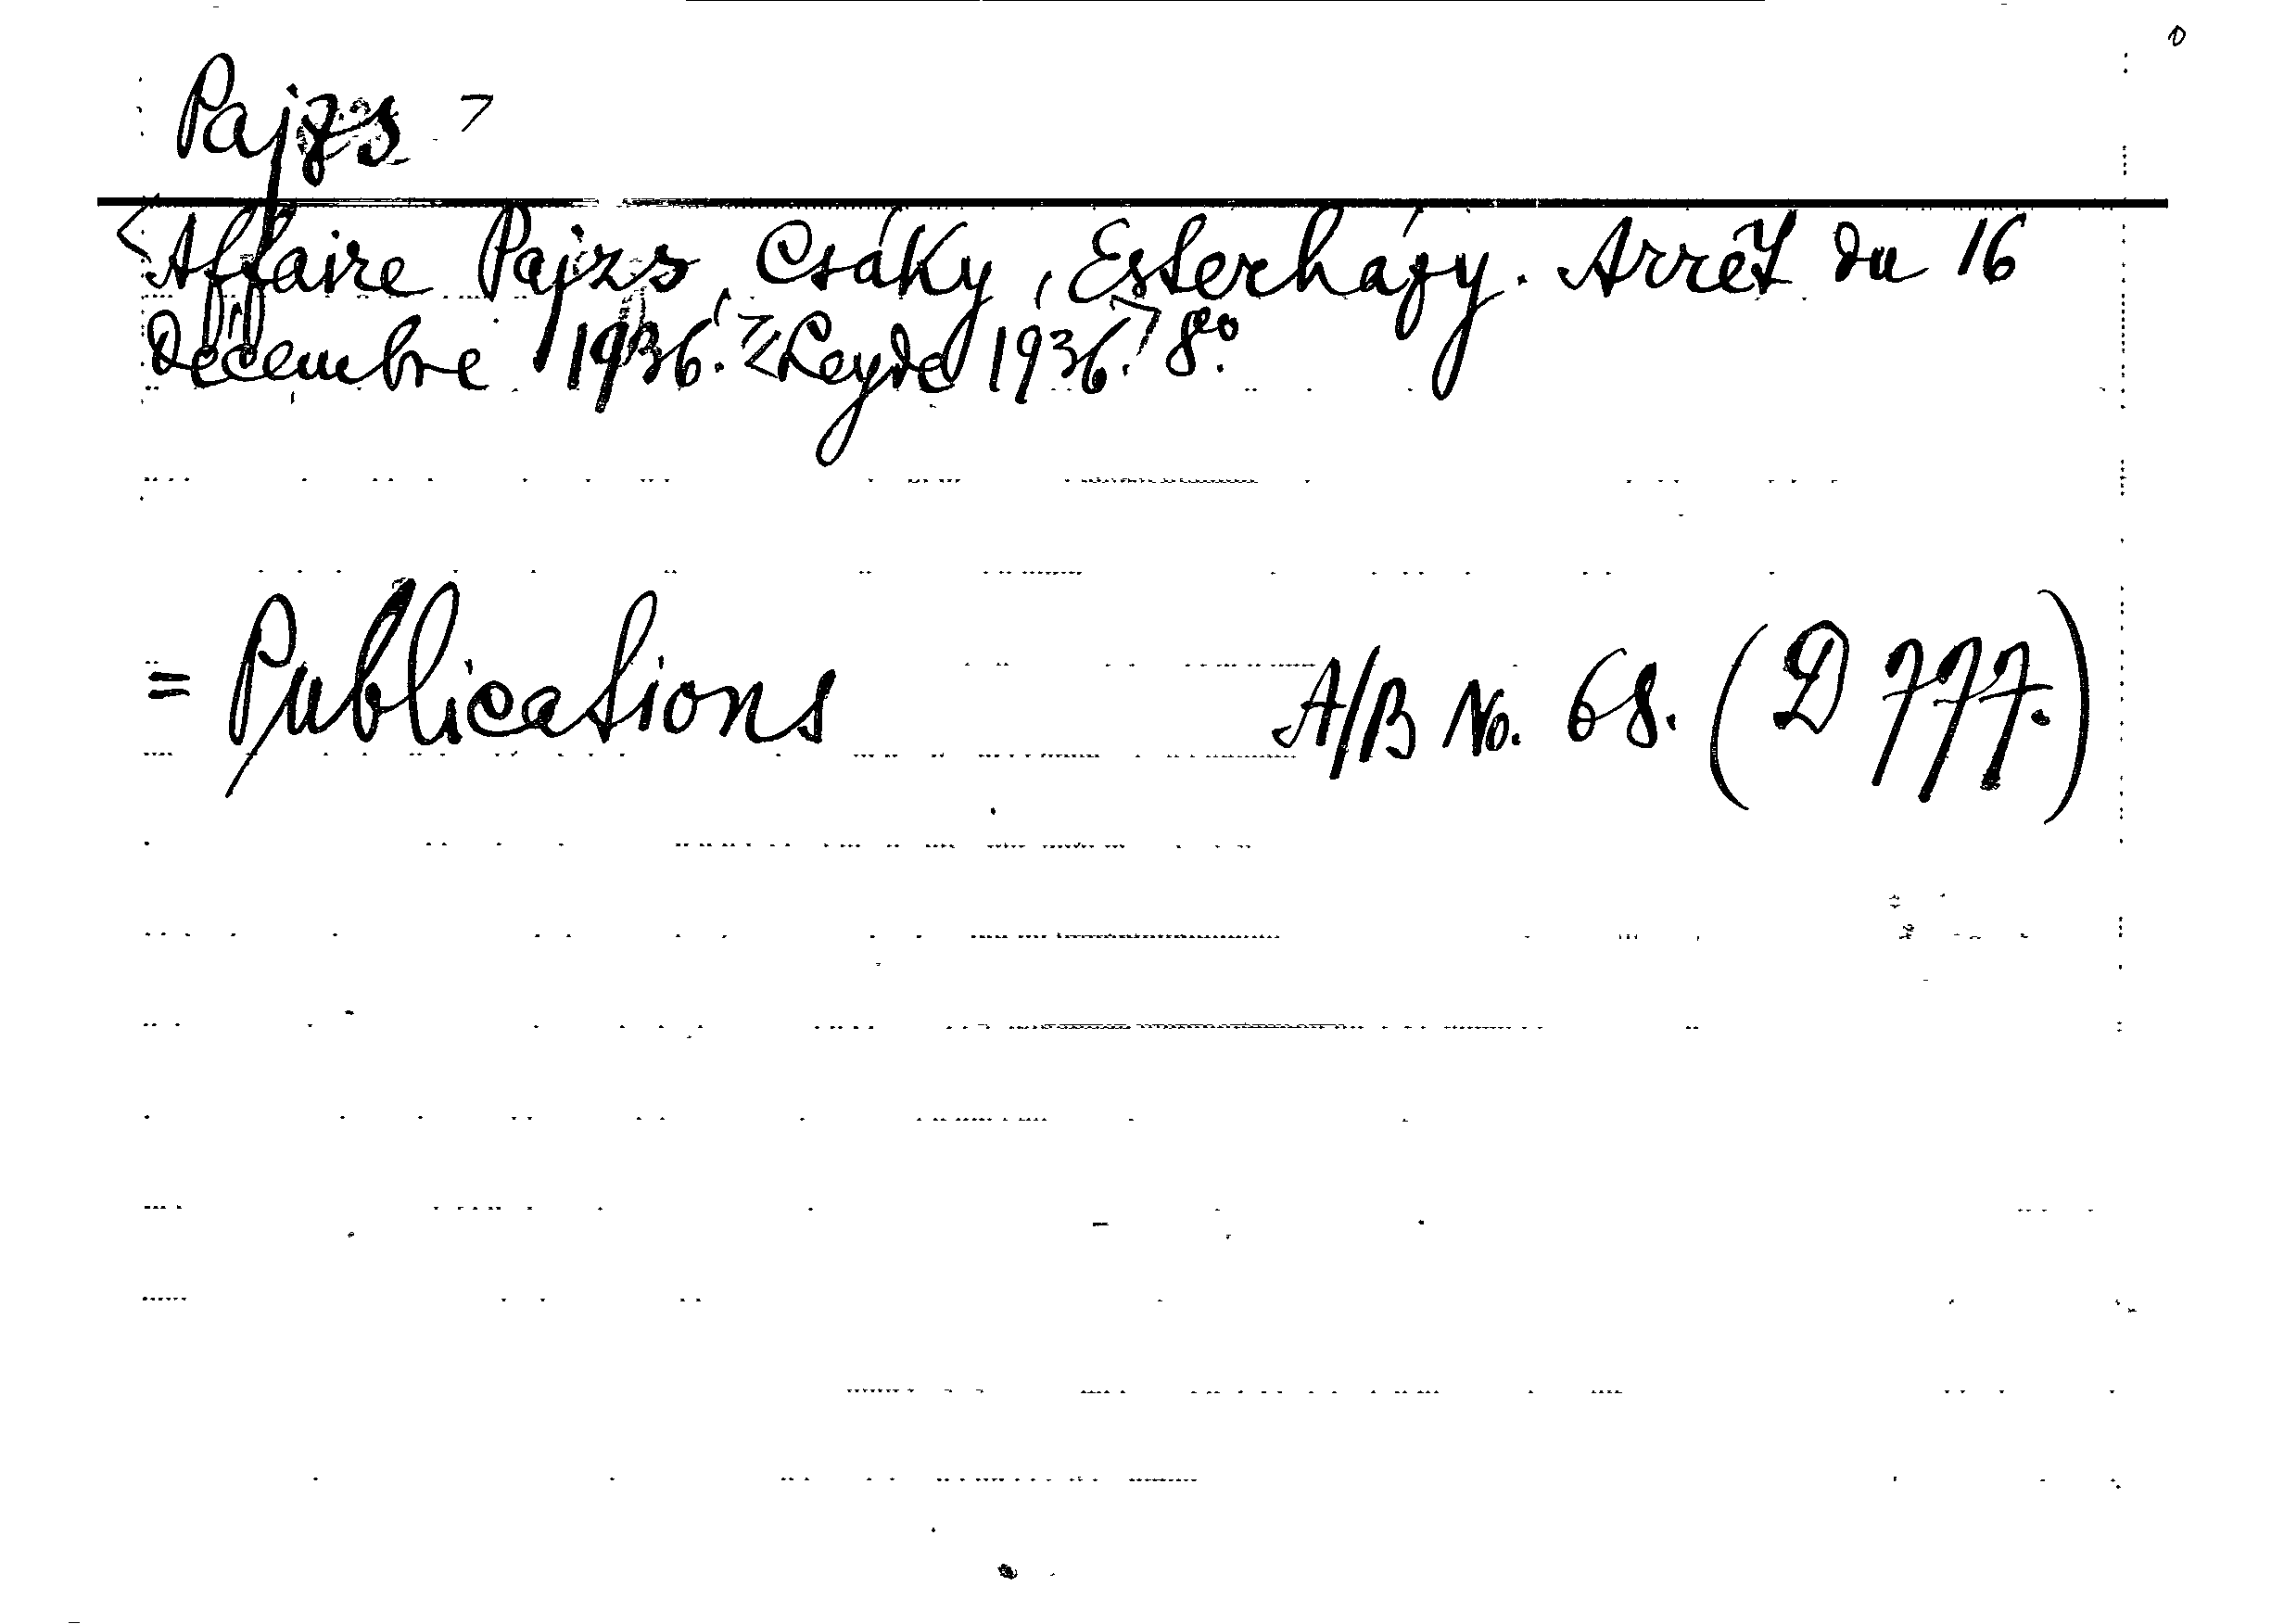 Pajzs
Affaire Pajzs, Csáky, Esterházy. Arrêt du 16
Décembre 1936. Leyde 1936. 8º.
= Publications A/B No. 68. (D 777.)